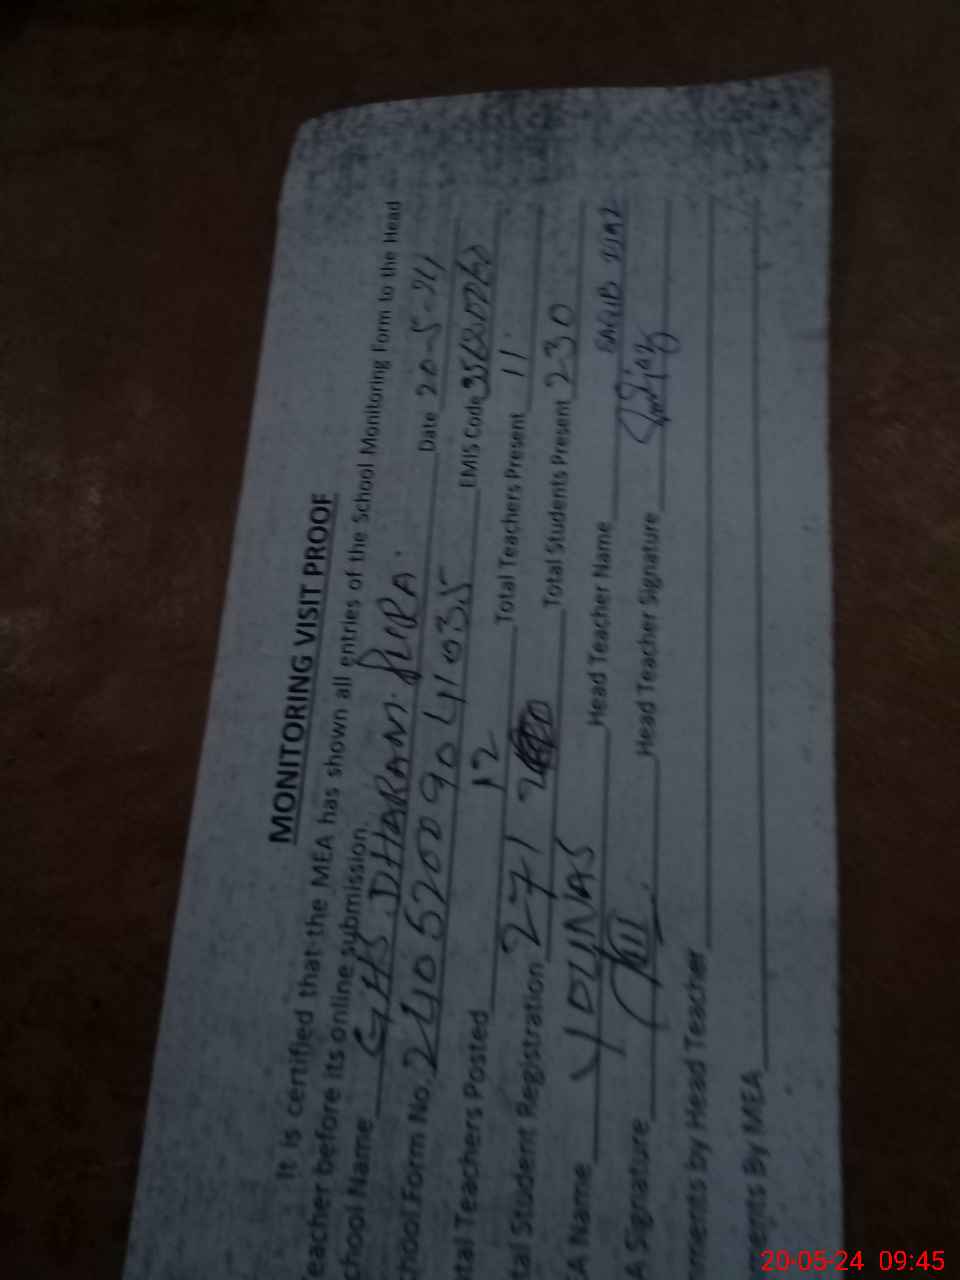 MONITORING VISIT PROOF
It is certified that the MEA has shown all entries of the School Monitoring Form to the Head
eacher before its online submission.
chool Name GHS DHARAM PURA. Date 20-5-24
chool Form No. 24052009041035 EMIS Code
tal Teachers Posted 12 Total Teachers Present 11
tal Student Registration 271 Total Students Present 230
A Name YOUNAS Head Teacher Name
A Signature Head Teacher Signature
ments by Head Teacher
ents By MEA
20-05-24 09:45